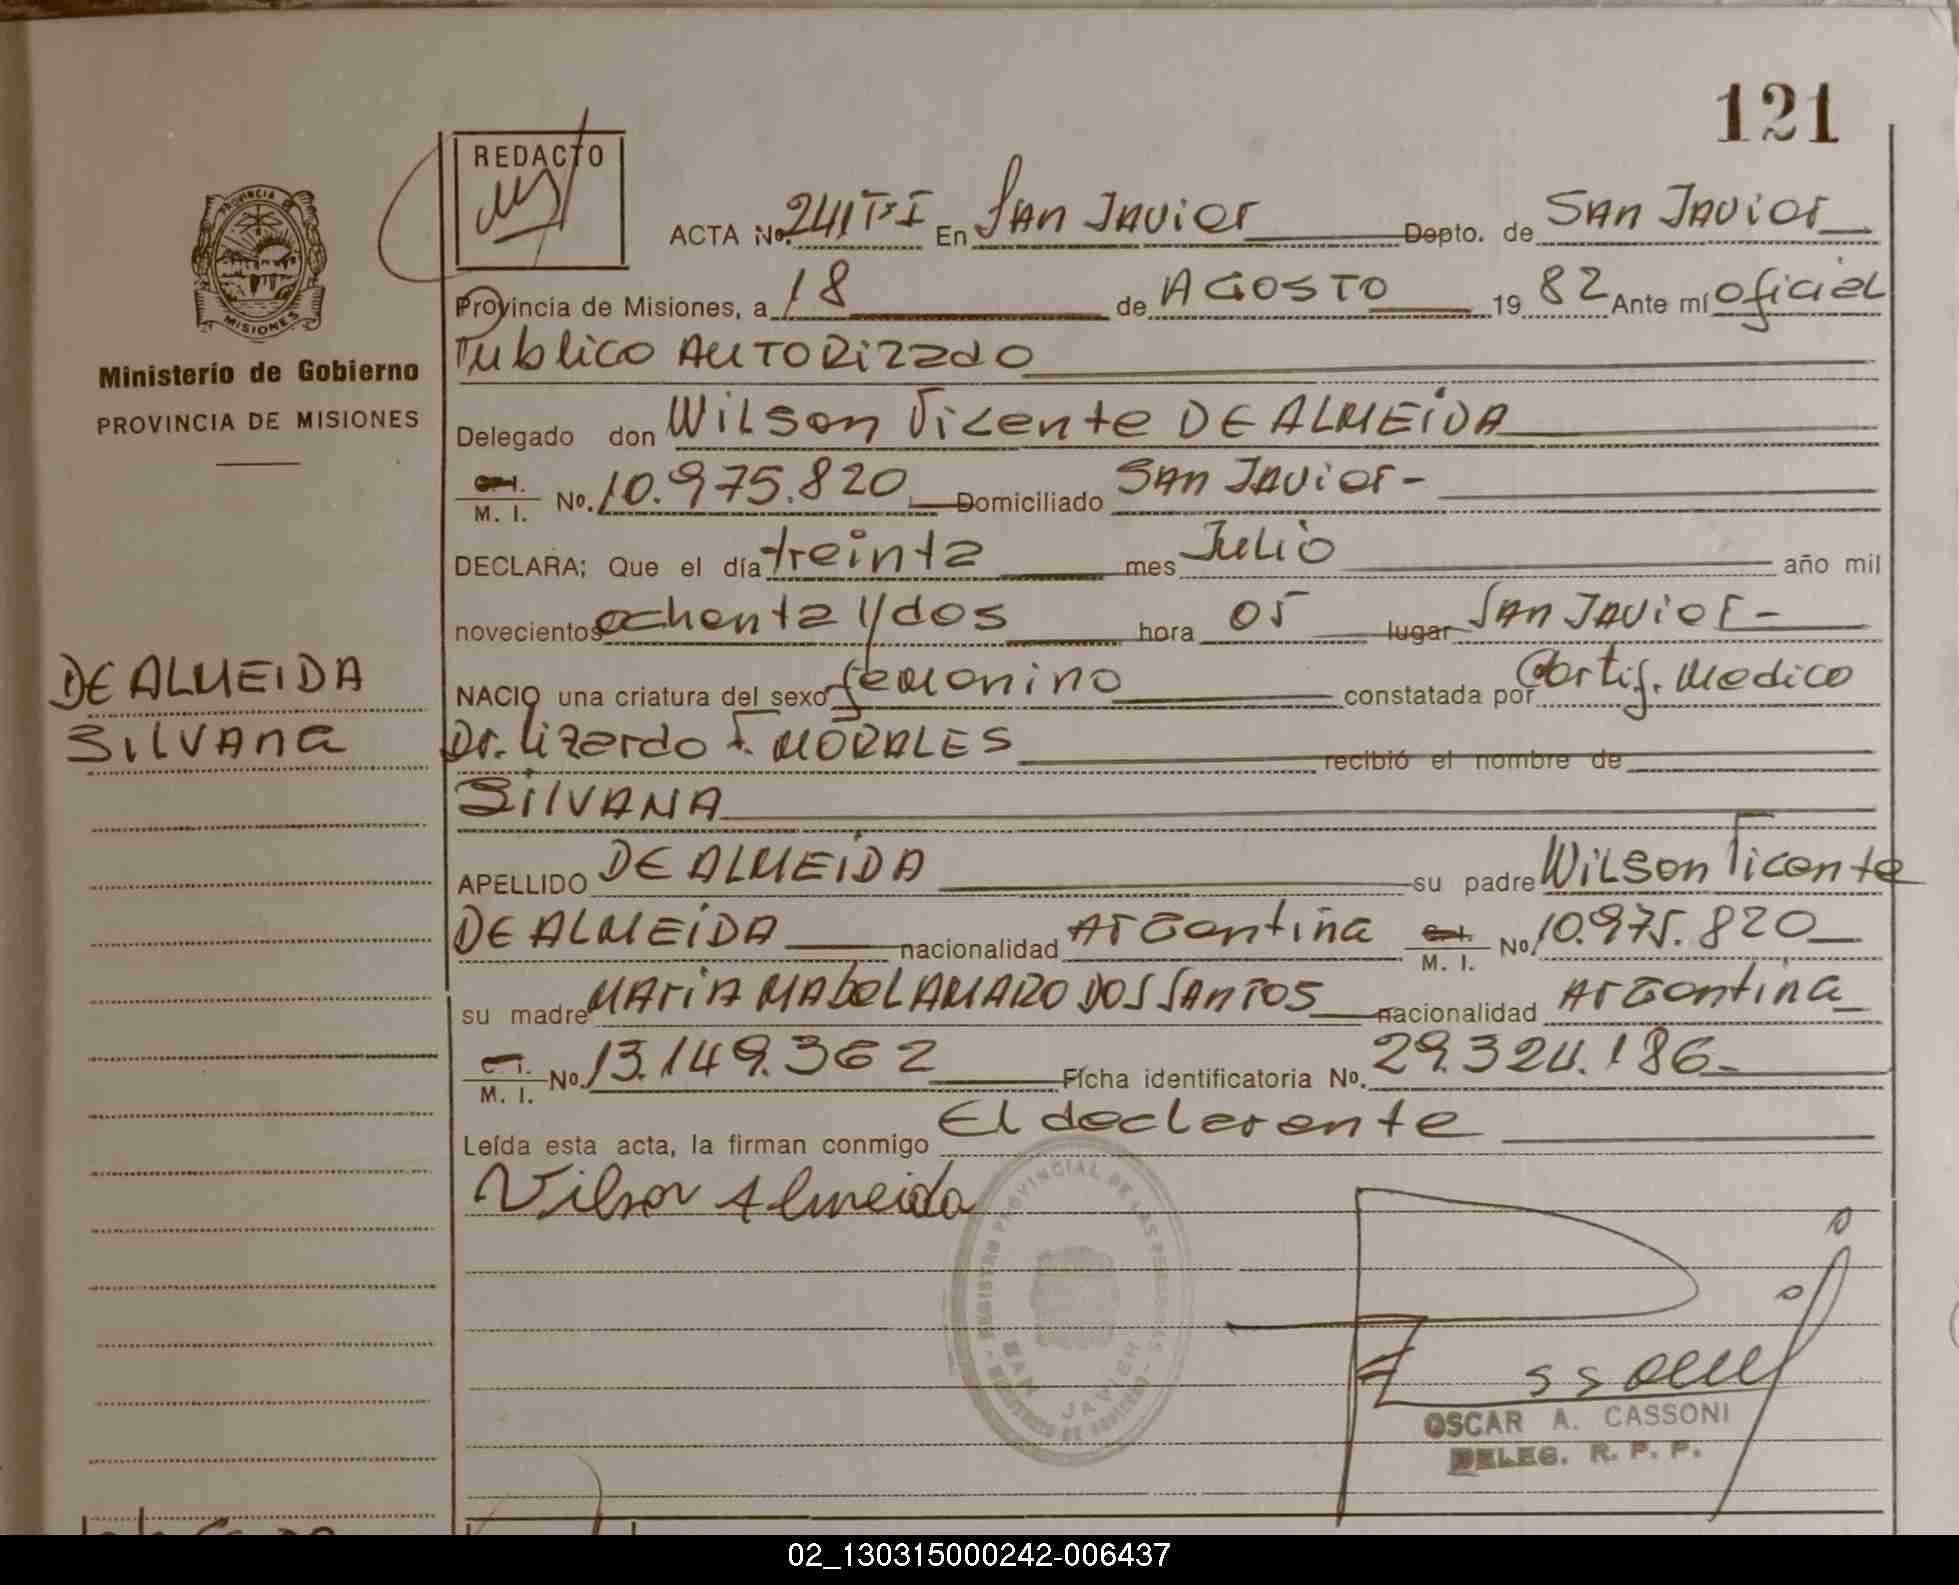 121
REDACTO
PROVINCIA DE
MISIONES
ACTA No. 241 T-I En San Javier Depto. de San Javier
Provincia de Misiones, a 18 de AGOSTO 1982 Ante mí oficial
Publico AUTORizado
Ministerío de Gobierno
PROVINCIA DE MISIONES
Delegado don Wilson Vicente DE ALMEiDA
C. I. M. I. No. 10.975.820 Domiciliado San Javier-
DECLARA; Que el día treinta mes Julio año mil
novecientos ochenta y dos hora 05 lugar San Javier-
NACIO una criatura del sexo femenino constatada por Certif. Medico
Dr. Lizardo F. MORALES recibió el nombre de
SilVANA
DE ALMEIDA
SilVAna
APELLIDO DE ALMEiDA su padre Wilson Vicente
DE ALMEiDA nacionalidad Argentina C. I. M. I. No 10.975.820
su madre Maria Mabel AMARO DOS SAnTOS nacionalidad Argentina
C. I. M. I. No. 13.149.362 Ficha identificatoria No. 29.324.186-
Leída esta acta, la firman conmigo El declarante
Vilson Almeida
REGISTRO PROVINCIAL DE LAS PERSONAS
SAN JAVIER
OSCAR A. CASSONI
DELEG. R. P. P.
02_130315000242-006437